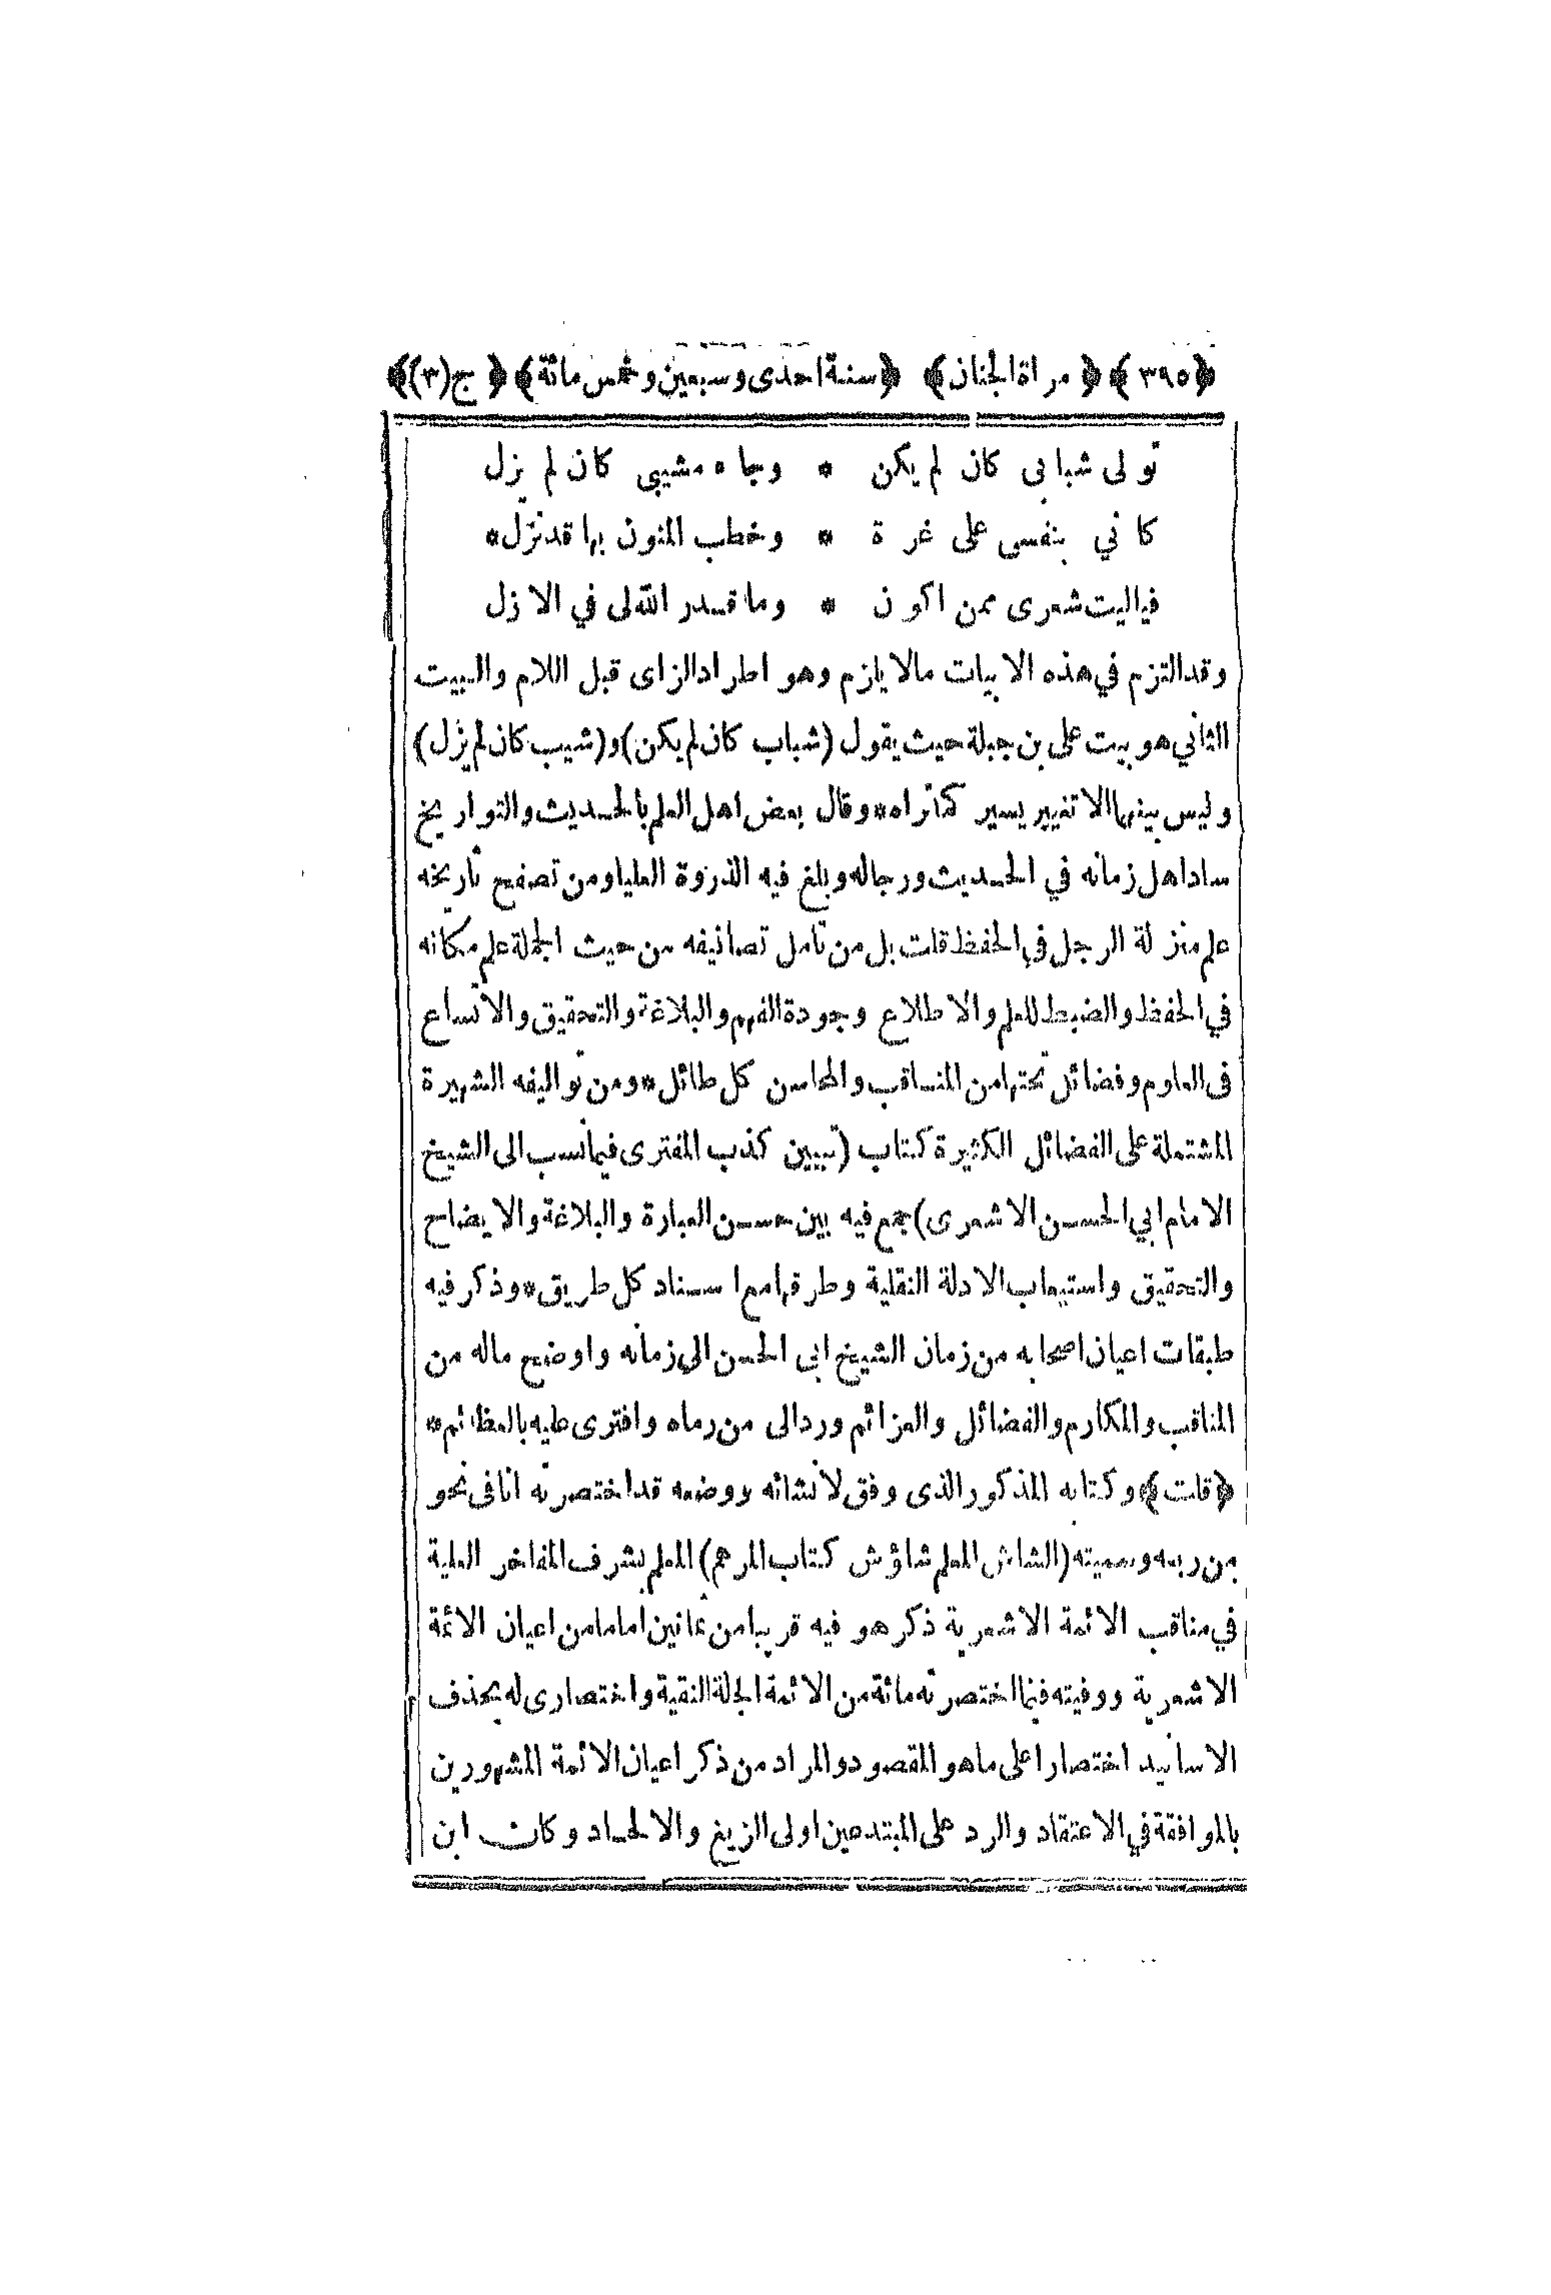 ﴿٣٩٥﴾ ﴿مراة الجنان﴾ ﴿سنة احدى وسبعين وخمس مائة﴾ ﴿ج(٣)﴾
تولى شبابى كان لم يكن * وجاء مشيبى كان لم يزل
كاني بنفسى على غرة * وخطب المنون بها قد نزل*
فياليت شعرى ممن اكون * وما قدر الله لى في الازل
وقد التزم في هذه الابيات مالا يلزم وهو اطراد الزاى قبل اللام والبيت
الثاني هو بيت على بن جبلة حيث يقول (شباب كان لم يكن) و(شيب كان لم يزل)
وليس بينهما الا تغيير يسير كما تراه*وقال بعض اهل العلم بالحديث والتواريخ
ساد اهل زمانه في الحديث ورجاله وبلغ فيه الذروة العليا ومن تصفح تاريخه
علم منزلة الرجل في الحفظ قلت بل من تامل تصانيفه من حيث الجملة علم مكانه
في الحفظ والضبط للعلم والاطلاع وجودة الفهم والبلاغة والتحقيق والاتساع
فى العلوم وفضائل تحتها من المناقب والمحاسن كل طائل*ومن تواليفه الشهيرة
المشتملة على الفضائل الكثيرة كتاب (تبيين كذب المفترى فيما نسب الى الشيخ
الامام ابي الحسن الاشعرى) جمع فيه بين حسن العبارة والبلاغة والايضاح
والتحقيق واستيعاب الادلة النقلية وطرقها مع اسناد كل طريق*وذكر فيه
طبقات اعيان اصحابه من زمان الشيخ ابى الحسن الى زمانه واوضح ماله من
المناقب والمكارم والفضائل والعزائم ورد الى من رماه وافترى عليه بالعظائم*
﴿قلت﴾ وكتابه المذكور الذى وفق لانشائه ووضعه قد اختصرته انا فى نحو
من ربعه وسميته (الشاش المعلم شاؤش كتاب المرهم) المعلم بشرف المفاخر العلية
في مناقب الائمة الاشعرية ذكر هو فيه قريبا من ثمانين اماما من اعيان الائمة
الاشعرية ووفيته فيما اختصرته مائة من الائمة الجلة النقية واختصارى له بحذف
الاسانيد اختصارا على ما هو المقصود والمراد من ذكر اعيان الائمة المشهورين
بالموافقة في الاعتقاد والرد على المبتدعين اولى الزيغ والالحاد وكان ابن